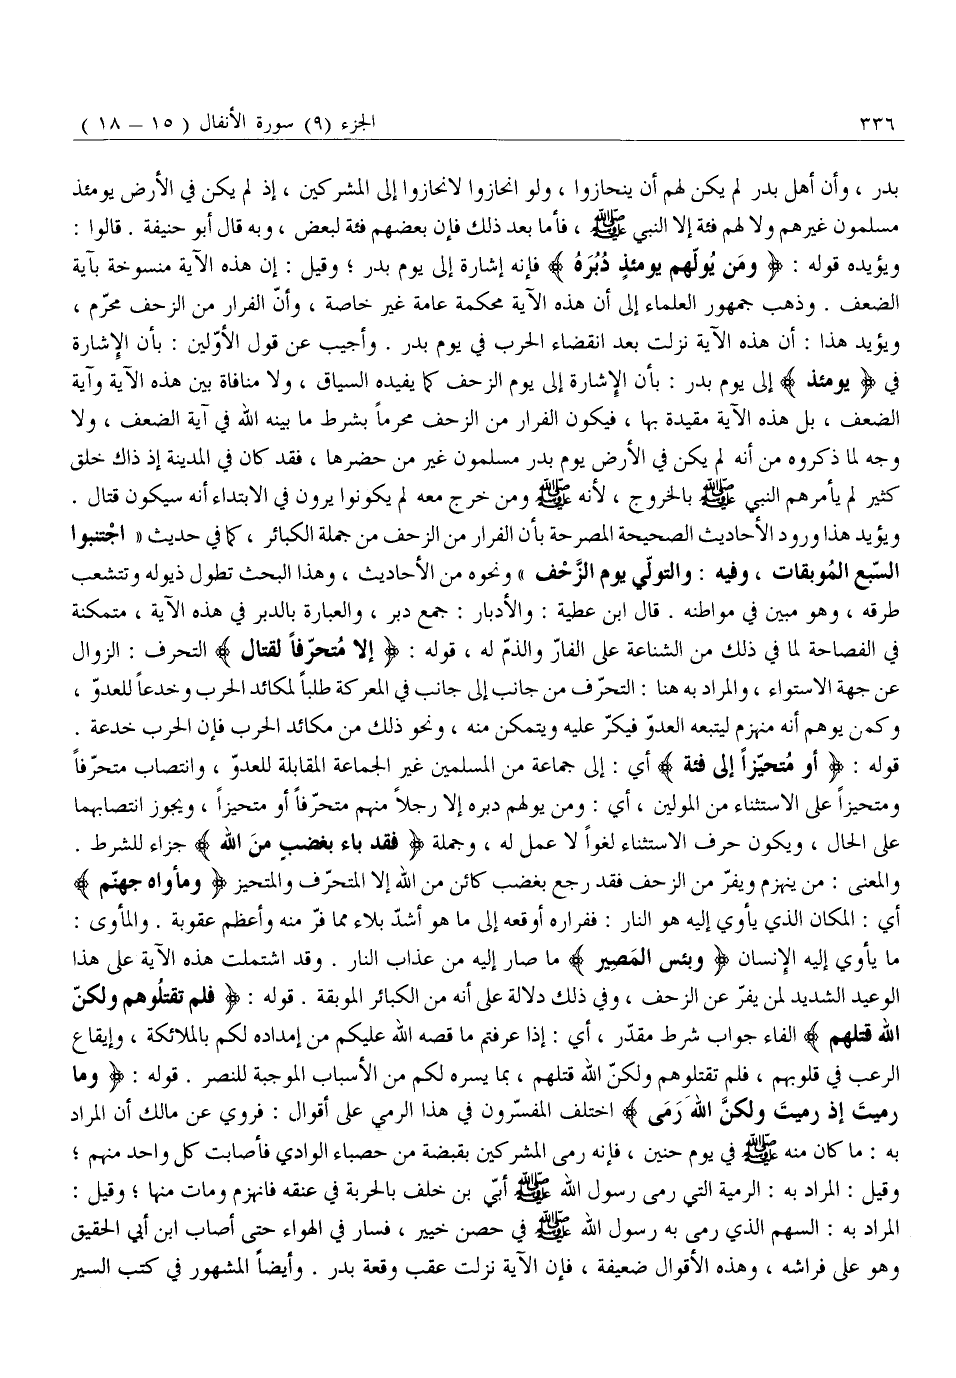 ٣٣٦ الجزء (٩) سورة الأنفال ( ١٥ – ١٨ )
بدر ، وأن أهل بدر لم يكن لهم أن ينحازوا ، ولو انحازوا لانحازوا إلى المشركين ، إذ لم يكن في الأرض يومئذ
مسلمون غيرهم ولا لهم فئة إلا النبي ﷺ ، فأما بعد ذلك فإن بعضهم فئة لبعض ، وبه قال أبو حنيفة . قالوا :
ويؤيده قوله : ﴿ ومَن يُولّهم يومئذٍ دُبُرَهُ ﴾ فإنه إشارة إلى يوم بدر ؛ وقيل : إن هذه الآية منسوخة بآية
الضعف . وذهب جمهور العلماء إلى أن هذه الآية محكمة عامة غير خاصة ، وأنّ الفرار من الزحف محرّم ،
ويؤيد هذا : أن هذه الآية نزلت بعد انقضاء الحرب في يوم بدر . وأجيب عن قول الأوّلين : بأن الإشارة
في ﴿ يومئذ ﴾ إلى يوم بدر : بأن الإشارة إلى يوم الزحف كما يفيده السياق ، ولا منافاة بين هذه الآية وآية
الضعف ، بل هذه الآية مقيدة بها ، فيكون الفرار من الزحف محرماً بشرط ما بينه الله في آية الضعف ، ولا
وجه لما ذكروه من أنه لم يكن في الأرض يوم بدر مسلمون غير من حضرها ، فقد كان في المدينة إذ ذاك خلق
كثير لم يأمرهم النبي ﷺ بالخروج ، لأنه ﷺ ومن خرج معه لم يكونوا يرون في الابتداء أنه سيكون قتال .
ويؤيد هذا ورود الأحاديث الصحيحة المصرحة بأن الفرار من الزحف من جملة الكبائر ، كما في حديث « اجْتنبوا
السّبع المُوبقات ، وفيه : والتولّي يوم الزَّحْف » ونحوه من الأحاديث ، وهذا البحث تطول ذيوله وتتشعب
طرقه ، وهو مبين في مواطنه . قال ابن عطية : والأدبار : جمع دبر ، والعبارة بالدبر في هذه الآية ، متمكنة
في الفصاحة لما في ذلك من الشناعة على الفارّ والذمّ له ، قوله : ﴿ إلا مُتحرّفاً لقتال ﴾ التحرف : الزوال
عن جهة الاستواء ، والمراد به هنا : التحرّف من جانب إلى جانب في المعركة طلباً لمكائد الحرب وخدعاً للعدوّ ،
وكمن يوهم أنه منهزم ليتبعه العدوّ فيكرّ عليه ويتمكن منه ، ونحو ذلك من مكائد الحرب فإن الحرب خدعة .
قوله : ﴿ أو مُتحيّزاً إلى فئة ﴾ أي : إلى جماعة من المسلمين غير الجماعة المقابلة للعدوّ ، وانتصاب متحرّفاً
ومتحيزاً على الاستثناء من المولين ، أي : ومن يولهم دبره إلا رجلاً منهم متحرّفاً أو متحيزاً ، ويجوز انتصابهما
على الحال ، ويكون حرف الاستثناء لغواً لا عمل له ، وجملة ﴿ فقد باء بغضبٍ منَ الله ﴾ جزاء للشرط .
والمعنى : من ينهزم ويفرّ من الزحف فقد رجع بغضب كائن من الله إلا المتحرّف والمتحيز ﴿ ومأواه جهنّم ﴾
أي : المكان الذي يأوي إليه هو النار : ففراره أوقعه إلى ما هو أشدّ بلاء مما فرّ منه وأعظم عقوبة . والمأوى :
ما يأوي إليه الإنسان ﴿ وبئس المَصِير ﴾ ما صار إليه من عذاب النار . وقد اشتملت هذه الآية على هذا
الوعيد الشديد لمن يفرّ عن الزحف ، وفي ذلك دلالة على أنه من الكبائر الموبقة . قوله : ﴿ فلم تقتلُوهم ولكنّ
الله قتلهم ﴾ الفاء جواب شرط مقدّر ، أي : إذا عرفتم ما قصه الله عليكم من إمداده لكم بالملائكة ، وإيقاع
الرعب في قلوبهم ، فلم تقتلوهم ولكنّ الله قتلهم ، بما يسره لكم من الأسباب الموجبة للنصر . قوله : ﴿ وما
رميتَ إذ رميتَ ولكنَّ اللهَ رَمَى ﴾ اختلف المفسّرون في هذا الرمي على أقوال : فروي عن مالك أن المراد
به : ما كان منه ﷺ في يوم حنين ، فإنه رمى المشركين بقبضة من حصباء الوادي فأصابت كل واحد منهم ؛
وقيل : المراد به : الرمية التي رمى رسول الله ﷺ أبيّ بن خلف بالحربة في عنقه فانهزم ومات منها ؛ وقيل :
المراد به : السهم الذي رمى به رسول الله ﷺ في حصن خيبر ، فسار في الهواء حتى أصاب ابن أبي الحقيق
وهو على فراشه ، وهذه الأقوال ضعيفة ، فإن الآية نزلت عقب وقعة بدر . وأيضاً المشهور في كتب السير